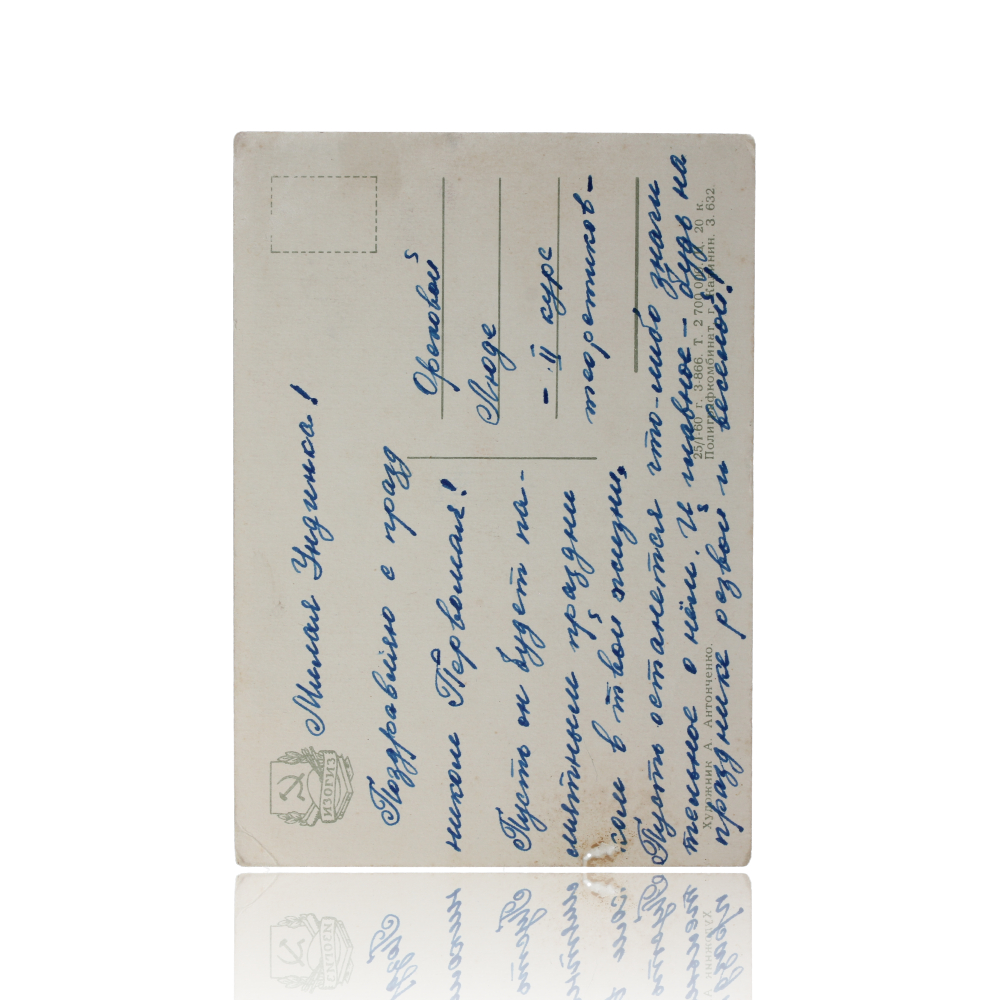 ИЗОГИЗ
Милая Ундинка!
Поздравляю с празд
ником Первомая!
Пусть он будет па-
мятным праздни
ком в твоей жизни,
Пусть останется что-либо знаме
тельное о нём. И главное – будь на
празднике резвой и веселой!
Ореховой
Люде
– II курс
теоретиков –
Художник А. Антонченко.
25/I 60 г. З-866. Т. 2 700 000. Ц. 20 к.
Полиграфкомбинат, г. Калинин. З. 632.